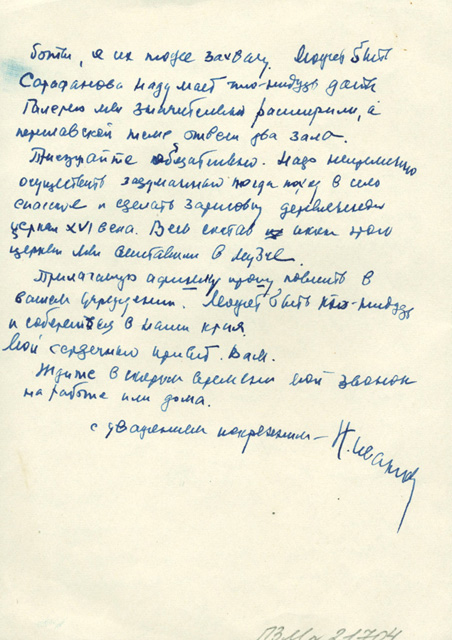 боты, я их тоже захвачу. Может быть
Сарафанова надумает что-нибудь дать
Галерею мы значительно расширили, а
переславской теме отвели два зала.
Приезжайте обязательно. Надо непременно
осуществить задуманный тогда поход в село
Спасское и сделать зарисовку деревянной
церкви XVI века. Весь состав икон этой
церкви мы выставили в музее.
Прилагаемую афишку прошу повесить в
вашем учреждении. Может быть кто-нибудь
и соберется в наши края.
Мой сердечный привет Вам.
Ждите в скором времени мой звонок
на работе или дома.
с уважением и искренним –
ПЗМи 21704